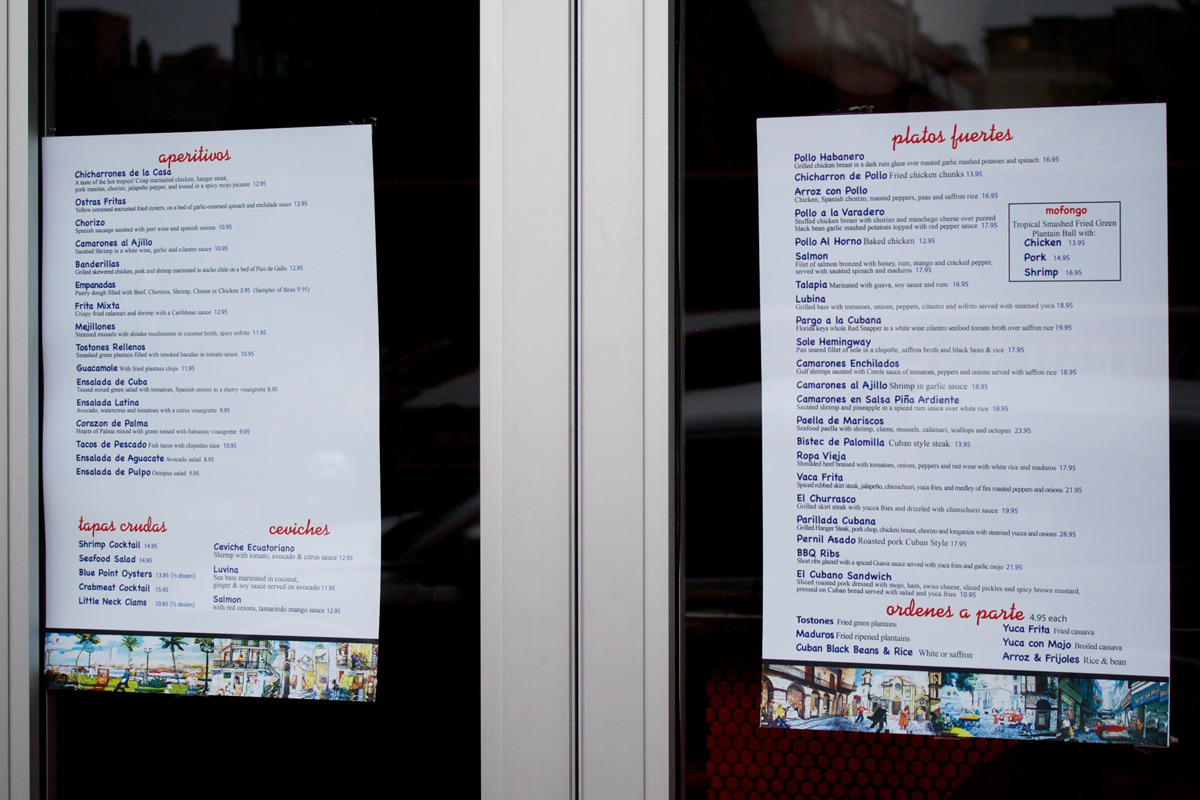 aperitivos
Chicharrones de la Casa
A taste of the hot tropics! Crisp marinated chicken, hanger steak,
pork masitas, chorizo, jalapeño pepper, and tossed in a spicy mojo picante 12.95
Ostras Fritas
Yellow cornmeal encrusted fried oysters, on a bed of garlic-creamed spinach and enchilada sauce 12.95
Chorizo
Spanish sausage sautéed with port wine and spanish onions 10.95
Camarones al Ajillo
Sautéed Shrimp in a white wine, garlic and cilantro sauce 10.95
Banderillas
Grilled skewered chicken, pork and shrimp marinated in ancho chile on a bed of Pico de Gallo 12.95
Empanadas
Pastry dough filled with Beef, Chorizos, Shrimp, Cheese or Chicken 3.95 (Sampler of three 9.95)
Frita Mixta
Crispy fried calamari and shrimp with a Caribbean sauce 12.95
Mejillones
Steamed mussels with shitake mushrooms in coconut broth, spicy sofrito 11.95
Tostones Rellenos
Smashed green plantain filled with smoked bacalao in tomato sauce 10.95
Guacamole With fried plantain chips 11.95
Ensalada de Cuba
Tossed mixed green salad with tomatoes, Spanish onions in a sherry vinaigrette 8.95
Ensalada Latina
Avocado, watercress and tomatoes with a citrus vinaigrette 9.95
Corazon de Palma
Hearts of Palma mixed with green tossed with balsamic vinegrette 9.95
Tacos de Pescado Fish tacos with chipotles slaw 10.95
Ensalada de Aguacate Avocado salad 8.95
Ensalada de Pulpo Octopus salad 9.95
tapas crudas
Shrimp Cocktail 14.95
Seafood Salad 14.95
Blue Point Oysters 13.95 (½ dozen)
Crabmeat Cocktail 15.95
Little Neck Clams 10.95 (½ dozen)
ceviches
Ceviche Ecuatoriano
Shrimp with tomato, avocado & citrus sauce 12.95
Luvina
Sea bass marinated in coconut,
ginger & soy sauce served on avocado 11.95
Salmon
with red onions, tamarindo mango sauce 12.95
platos fuertes
Pollo Habanero
Grilled chicken breast in a dark rum glaze over roasted garlic mashed potatoes and spinach 16.95
Chicharron de Pollo Fried chicken chunks 13.95
Arroz con Pollo
Chicken, Spanish chorizo, roasted peppers, peas and saffron rice 16.95
Pollo a la Varadero
Stuffed chicken breast with chorizo and manchego cheese over pureed
black bean garlic mashed potatoes topped with red pepper sauce 17.95
Pollo Al Horno Baked chicken 12.95
Salmon
Filet of salmon bronzed with honey, rum, mango and cracked pepper,
served with sautéed spinach and maduros 17.95
Talapia Marinated with guava, soy sauce and rum 16.95
mofongo
Tropical Smashed Fried Green
Plantain Ball with:
Chicken 13.95
Pork 14.95
Shrimp 16.95
Lubina
Grilled bass with tomatoes, onions, peppers, cilantro and sofrito served with steamed yuca 18.95
Pargo a la Cubana
Florida keys whole Red Snapper in a white wine cilantro seafood tomato broth over saffron rice 19.95
Sole Hemingway
Pan seared fillet of sole in a chipotle, saffron broth and black bean & rice 17.95
Camarones Enchilados
Gulf shrimps sautéed with Creole sauce of tomatoes, peppers and onions served with saffron rice 18.95
Camarones al Ajillo Shrimp in garlic sauce 18.95
Camarones en Salsa Piña Ardiente
Sautéed shrimp and pineapple in a spiced rum sauce over white rice 18.95
Paella de Mariscos
Seafood paella with shrimp, clams, mussels, calamari, scallops and octopus 23.95
Bistec de Palomilla Cuban style steak 13.95
Ropa Vieja
Shredded beef braised with tomatoes, onions, peppers and red wine with white rice and maduros 17.95
Vaca Frita
Spiced rubbed skirt steak, jalapeño, chimichurri, yuca fries, and medley of fire roasted peppers and onions 21.95
El Churrasco
Grilled skirt steak with yucca fries and drizzled with chimichurri sauce 19.95
Parillada Cubana
Grilled Hanger Steak, pork chop, chicken breast, chorizo and longaniza with steamed yucca and onions 28.95
Pernil Asado Roasted pork Cuban Style 17.95
BBQ Ribs
Short ribs glazed with a spiced Guava sauce served with yuca fries and garlic mojo 21.95
El Cubano Sandwich
Sliced roasted pork dressed with mojo, ham, swiss cheese, sliced pickles and spicy brown mustard,
pressed on Cuban bread served with salad and yuca fries 10.95
ordenes a parte 4.95 each
Tostones Fried green plantains
Maduros Fried ripened plantains
Cuban Black Beans & Rice White or saffron
Yuca Frita Fried cassava
Yuca con Mojo Broiled cassava
Arroz & Frijoles Rice & bean